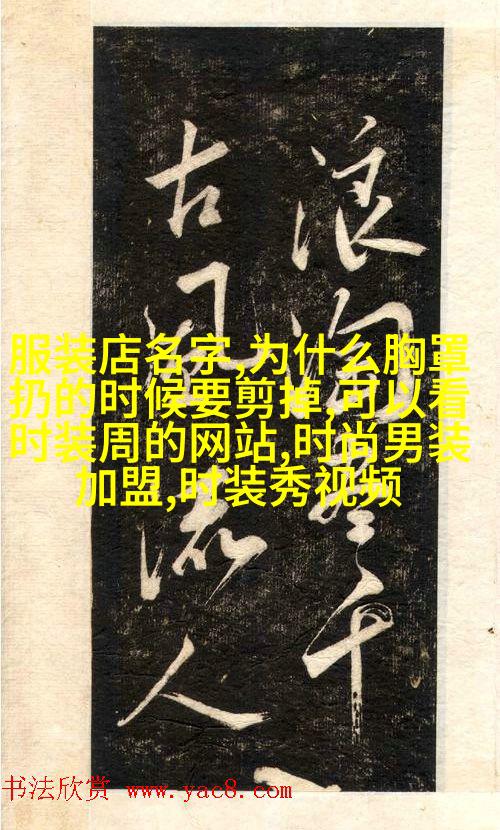 浪淘尽千
古风流人
服装店名字,为什么胸罩
扔的时候要剪掉,可以看
时装周的网站,时尚男装
加盟,时装秀视频
书法欣赏 www.yac8.com